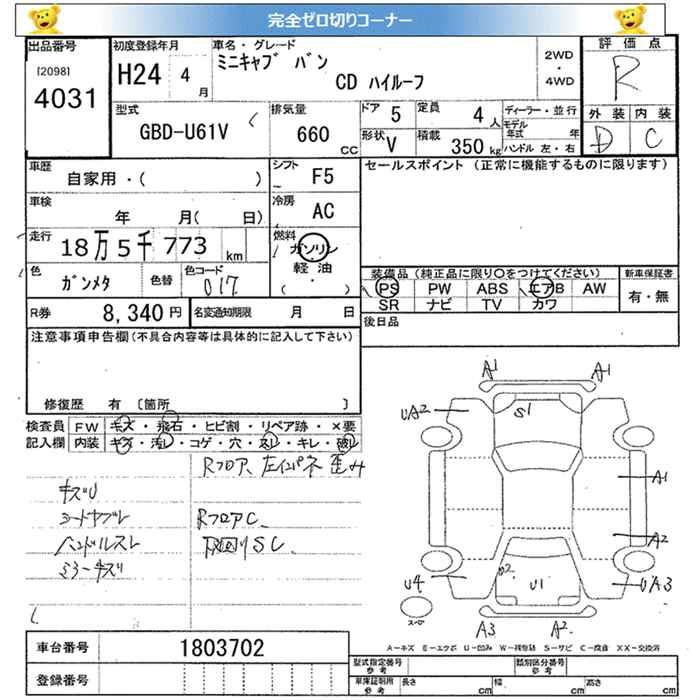 完全ゼロ切りコーナー
出品番号
[2098]
4031
初度登録年月
H24 4月
車名・グレード
ミニキャブ バン
CD ハイルーフ
2WD
・
4WD
評価点
R
外装 内装
D C
型式
GBD-U61V
排気量
660 CC
ドア 5
定員 4人
形状 V
積載 350kg
ディーラー・並行
モデル年式 年
ハンドル 左・右
車歴
自家用・( )
シフト F5
車検
年 月( 日)
冷房 AC
走行
18万5千773km
燃料
ガソリン
軽油
( ・ )
色
ガンメタ
色替
色コード
017
R券 8,340円
名変通知期限 月 日
セールスポイント (正常に機能するものに限ります)
装備品 (純正品に限り○をつけてください)
PS PW ABS エアB AW
SR ナビ TV カワ
新車保証書
有・無
後日品
注意事項申告欄(不具合内容等は具体的に記入して下さい)
修復歴 有 〔箇所 〕
検査員記入欄
FW キズ・飛石・ヒビ割・リペア跡・×要
内装 キズ・汚レ・コゲ・穴・スレ・キレ・破レ
Rフロア、左インパネ歪み
キズU
シートヤブレ
RフロアC
ハンドルスレ
SC
ミラーキズ
A1 A1
UA2
S1
A1
A2
U2
U1
U4
UA3
A3 A2
スペア
A-キズ E-エクボ U-凹み W-補修跡 S-サビ C-腐食 XX-交換済
車台番号 1803702
登録番号
型式指定番号 参考
類別区分番号 参考
車庫証明用 参考
長さ cm 幅 cm 高さ cm